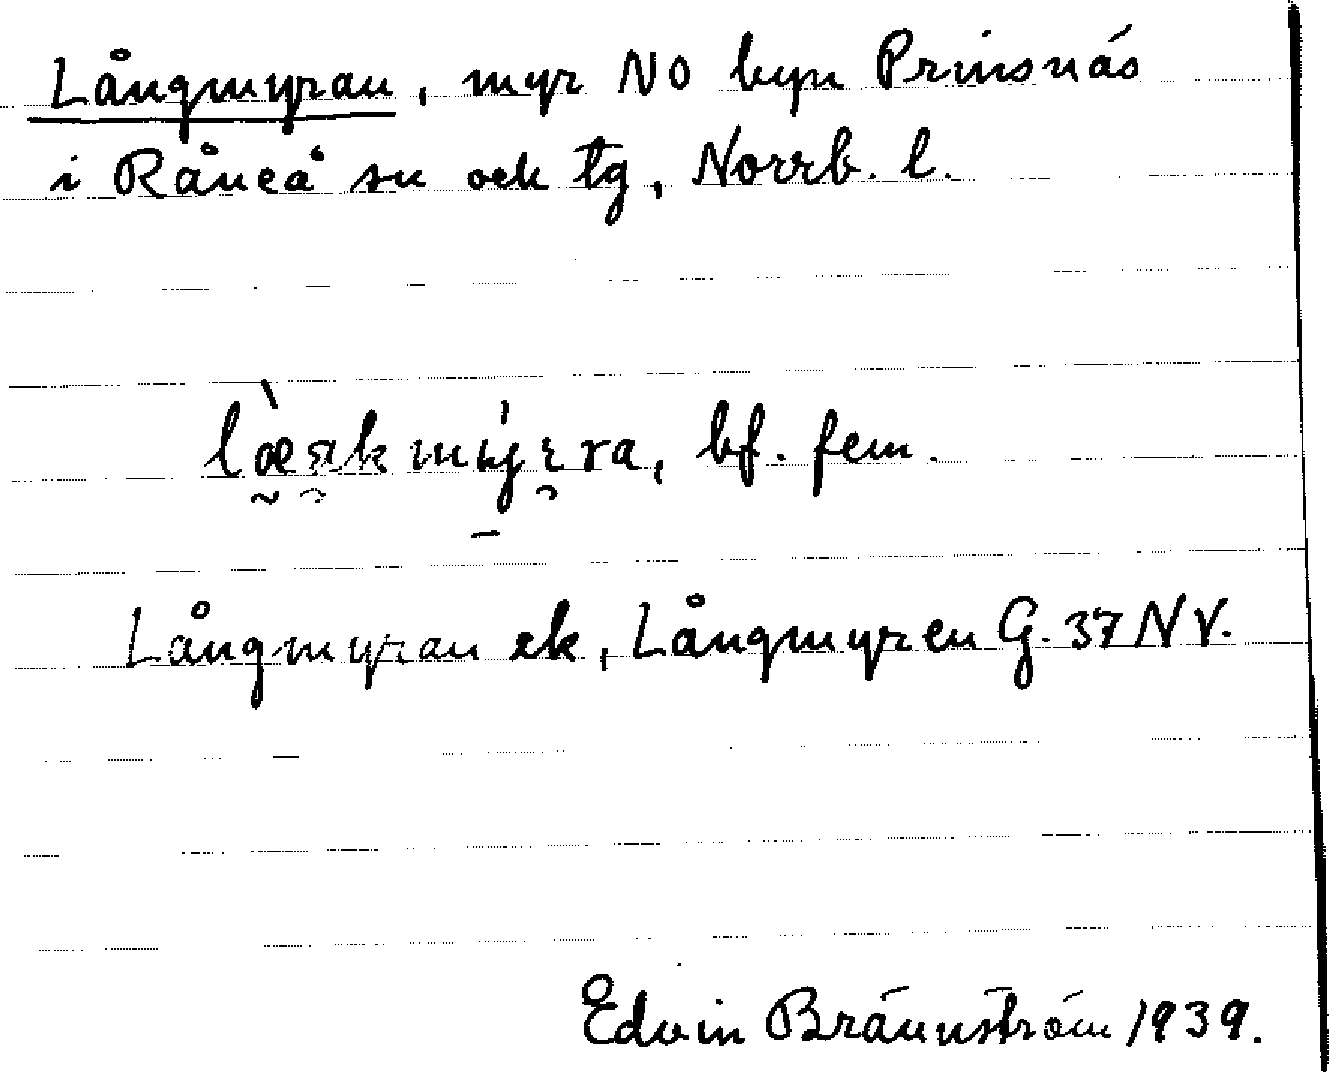 Långmyran, myr NO byn Prinsnäs
i Råneå sn ock tg, Norrb. l.
bf. fem.
Långmyran ek, Långmyren G. 37 NV.
Edvin Brännström 1939.